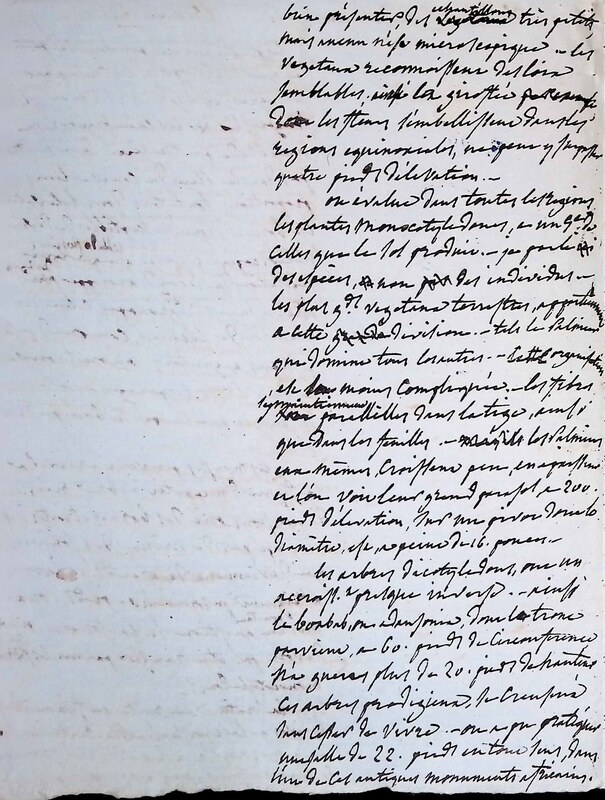 bien présenter, des echantillons très petits,
mais aucun n'est microscopique - les
vegetaux reconnoissent des loix
semblables, la giroflée
les fleurs s'embellissent dans les
regions equinoxiales, ne peut y
quatre pieds d'élévation. -
on évalue dans toutes les Regions
les plantes monocotyledones, a un
celles que le sol produit. - je parle
des espèces, non des individus. -
les plus gds vegetaux terrestres, appartiennent
a cette division. - tels le Palmier
qui domine tous les autres - organisation
est moins compliquée, - les fibres
se maintiennent
parallelles dans la tige, ainsi
que dans les feuilles. - les Palmiers
eux mêmes, croissent peu, en épaisseur
et l'on voit leur grand parasol a 200.
pieds d'élévation, sur un pivot dont le
diamètre, est a peine de 16. pouces. -
les arbres dicotyledons, ont un
accroisst presque inverse. - ainsi
le baobab, ou adansonia, dont le tronc
parvient, a 60. pieds de circonference
n'a gueres plus de 20. pieds de hauteur
Ces arbres prodigieux, se creusent
sans cesser de vivre. - on a pu pratiquer
une salle de 22. pieds en tout sens, dans
l'un de ces antiques monuments africains.